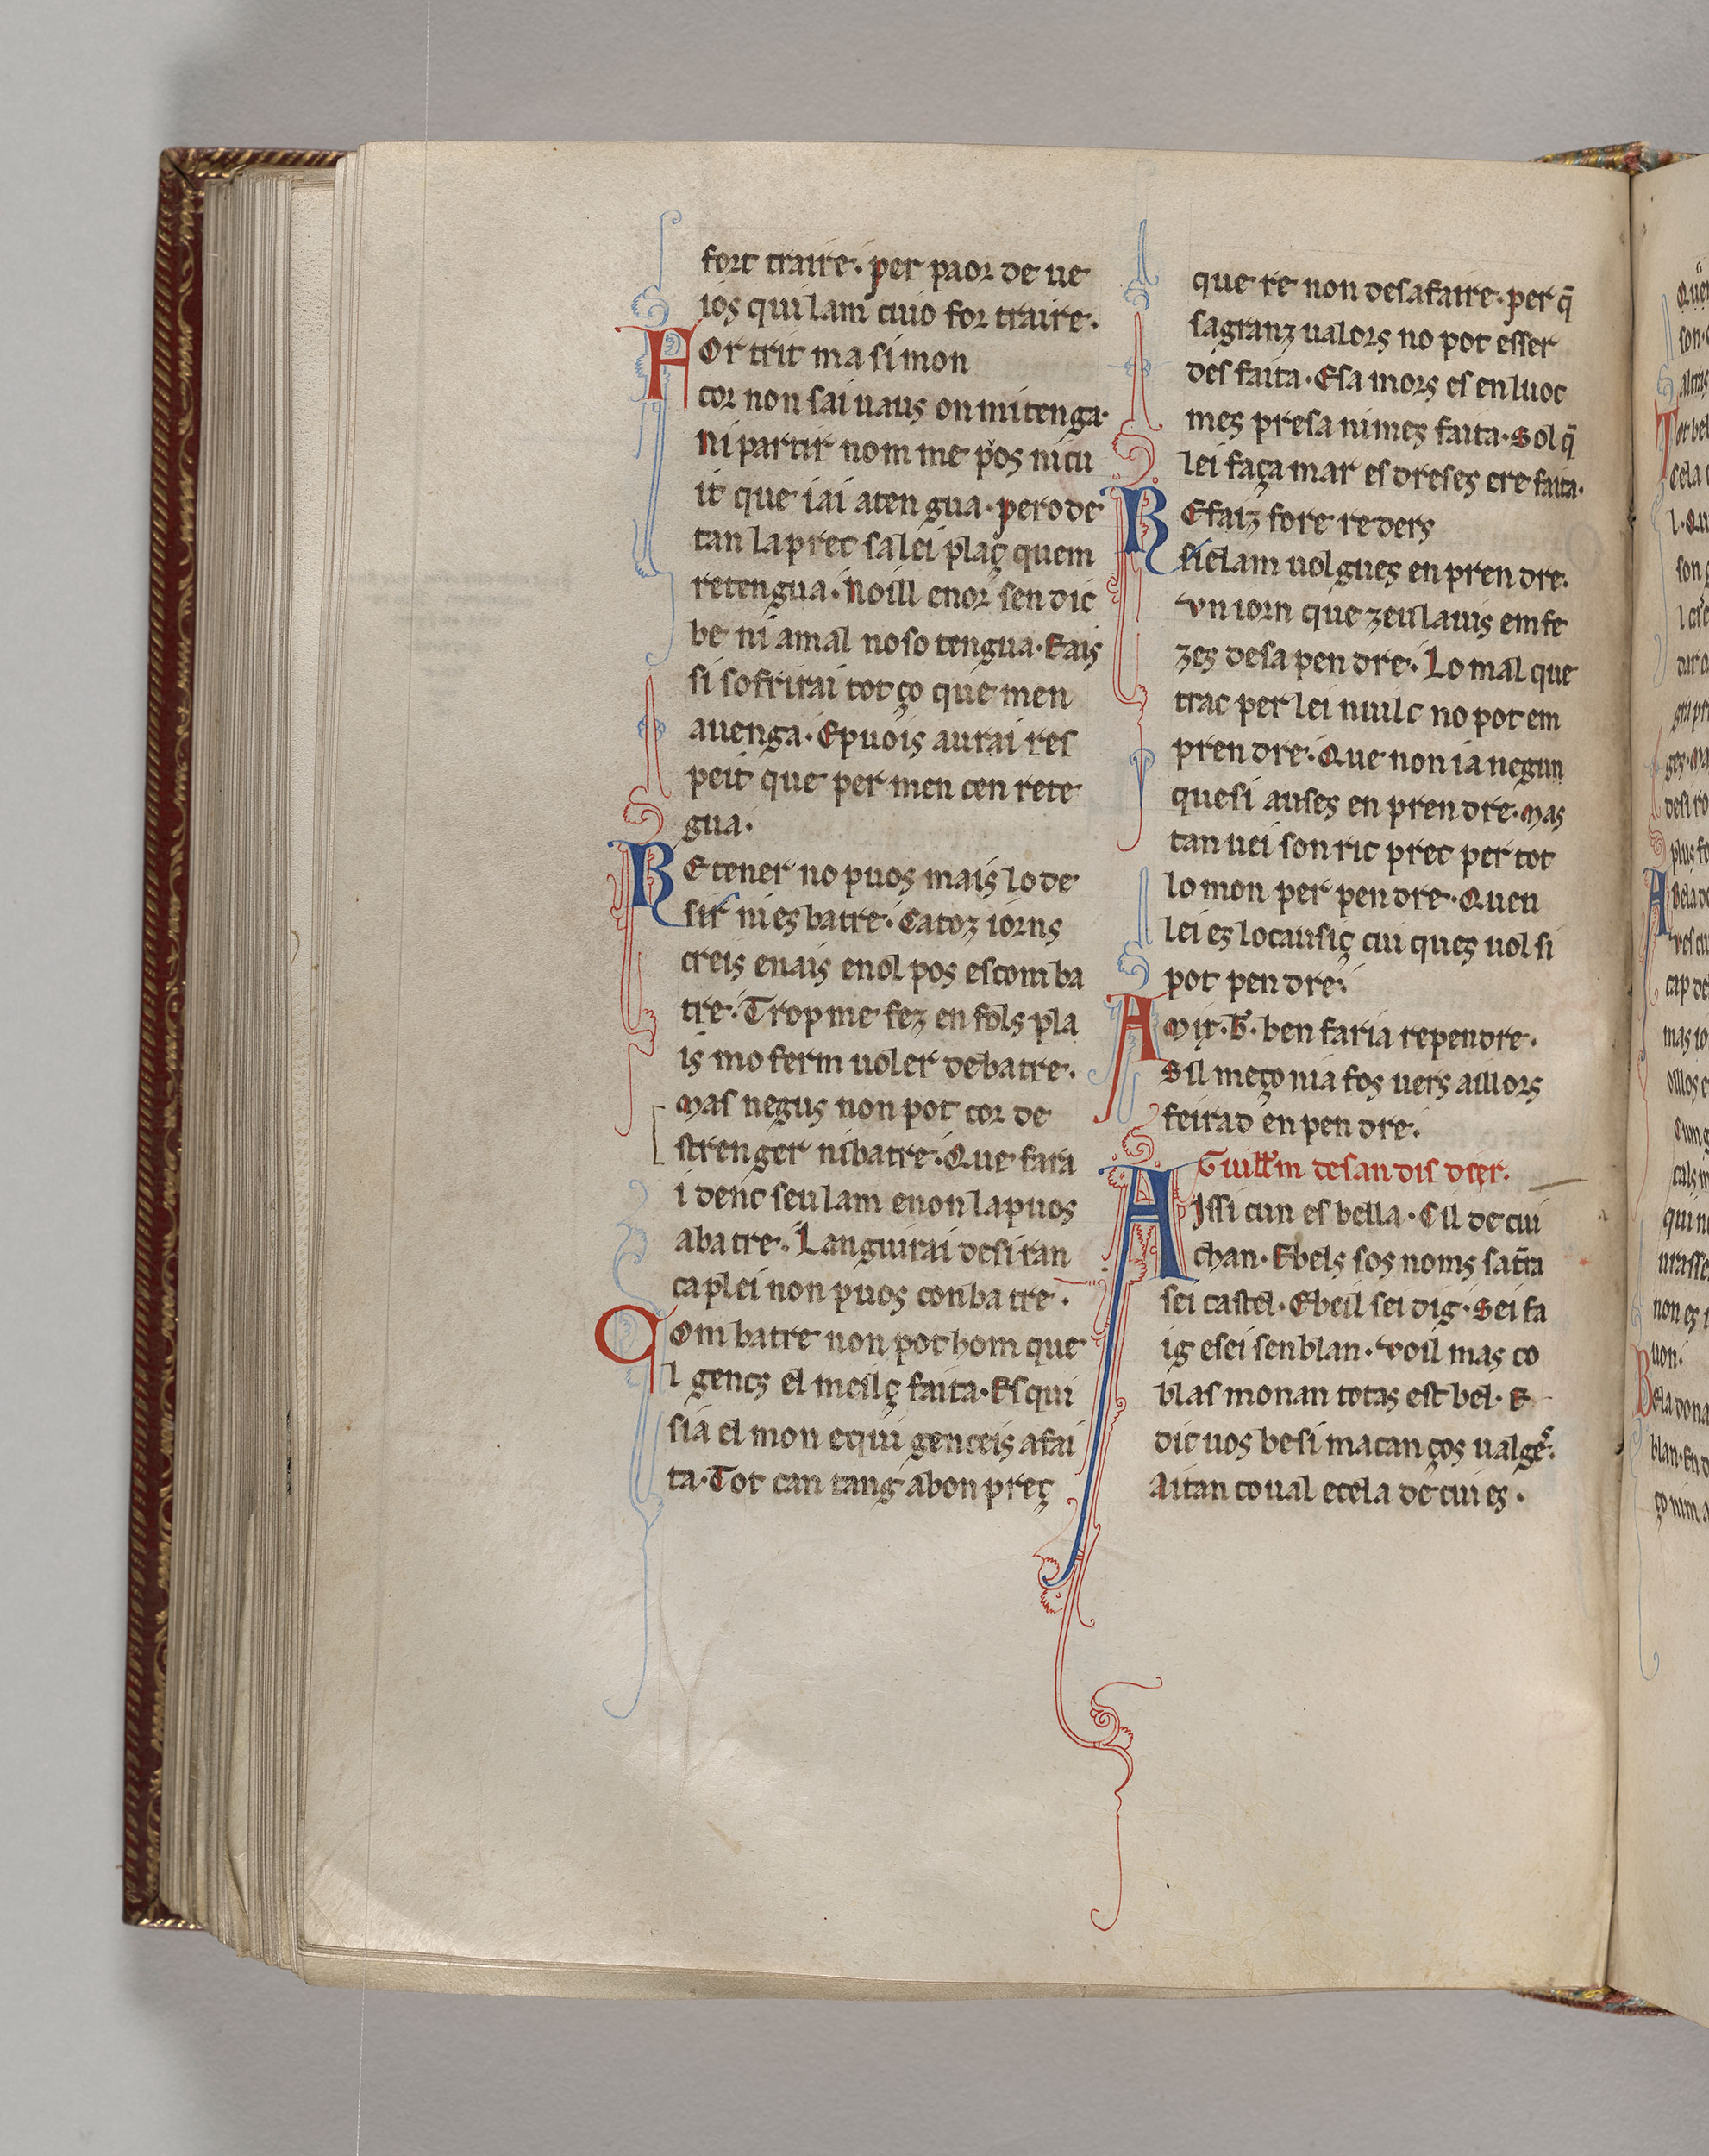 fort traire. per paor de ue
ios qui lam cuio for traire.
For trit ma si mon
cor non sai uaus on mi tenga.
Ni partir nom me pos ni cu
it que iai aten gua. pero de
tan la prec sa lei plaç quem
retengua. Noill enor sen dic
be ni a mal no so tengua. Eais
si sofrirai tot ço que men
auenga. Epuois aurai ref
peit que per men cen rete
gua.
REtener no puos mais lo de
sir ni es batre. Catoz iorns
creis enais enol pos escom ba
tre. Trop me fez en fols pla
is mo ferm uoler debatre.
Mas negus non pot cor de
strenger ni batre. Que fara
i denc seu lam e non la puos
abatre. Languirai desiran
ca plei non puos conba tre.
Com batre non pot hom que
l gencs el meilç faita. Es qui
sia el mon equi genceis afai
ta. Tot can tang abon preç
que re non desafaire. per q̄
sa granz ualors no pot esser
des faita. Esa mors es en luoc
mes presa ni mes faita. Sol q̄
lei faça mar es dreses ere faita.
REfaiz fore reders
siclam uolgues en pren dre.
Vn iorn que zeu lauis em fe
zes desa pen dre. Lo mal que
trac per lei niulc no pot em
pren dre. Que non ia negun
que si auses en pren dre. Mas
tan uei son ric prec per tot
lo mon per pen dre. Quen
lei es lo causiç cui ques uol si
pot pen dre.
AMix. B. ben faria rependre.
Sil meço nia fos uers aillors
feirad en pen dre.
Guillm de san dis dier.
AIssi cun es bella. Cil de cui
chan. Ebels sos noms sa tr̄a
sei castel. Ebeil sei dig. Sei fa
ig esei senblan. Voil mas co
blas monan totas est bel. E
dic uos be si ma can ços ualges.
Aitan co ual ecela de cui es.